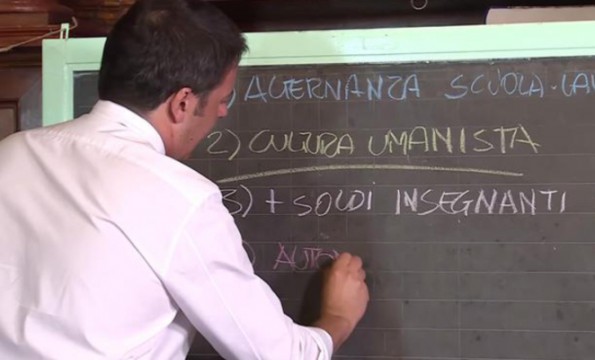 ) ALTERNANZA SCUOLA-LAV
2) CULTURA UMANISTA
3) + SOLDI INSEGNANTI
) AUTO